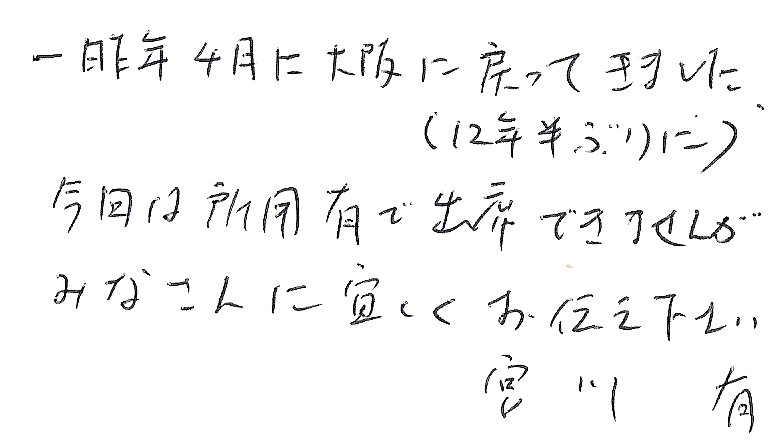 一昨年4月に大阪に戻ってきました
(12年半ぶりに)
今回は所用有で出席できませんが
みなさんに宜しくお伝え下さい
宮川 有